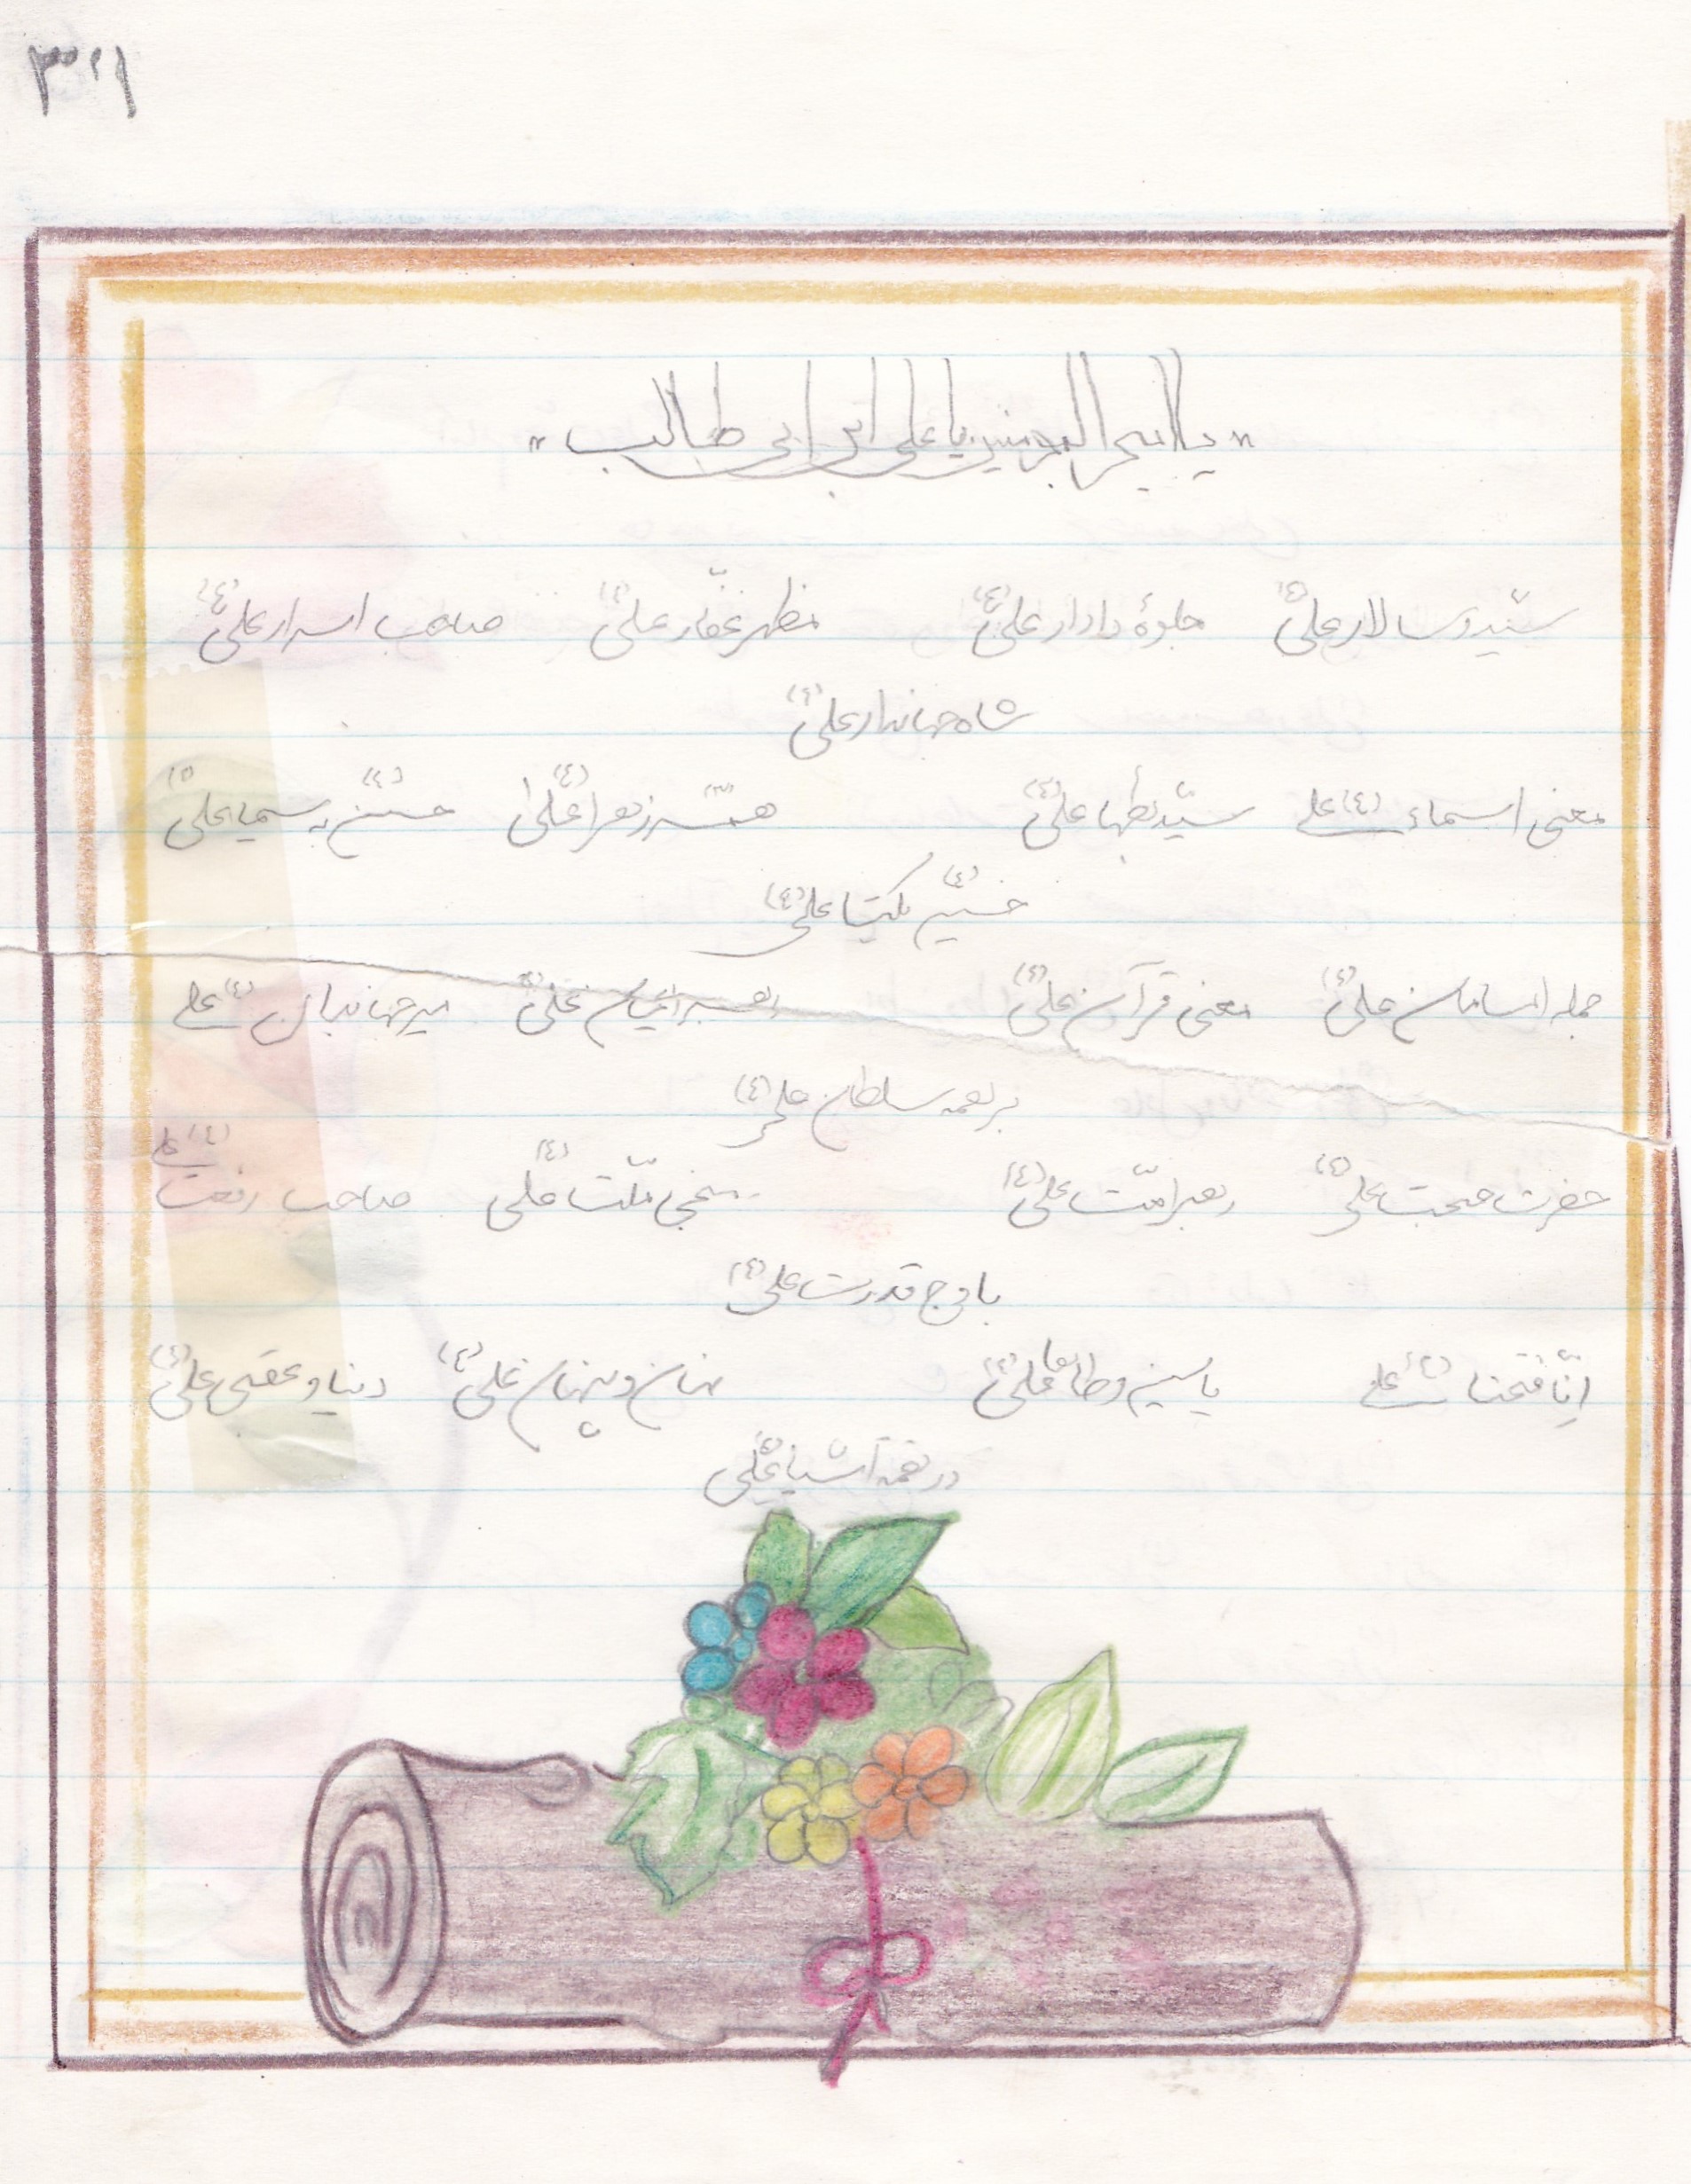 ۳۰۱
"یا امیرالمومنین یا علی ابن ابی طالب"
سیّد و سالار علی (ع) جلوهٔ دادار علی (ع) مظهر غفّار علی (ع) صاحب اسرار علی (ع)
شاه جهاندار علی (ع)
معنی اسماء (ع) علی سیّد بطها علی (ع) همسر زهرا (س) علی (ع) حسن به سیما علی (ع)
یکتا علی (ع)
علی (ع) معنی قرآن علی (ع) علی (ع) میر جهانبان (ع) علی
بر همه سلطان علی (ع)
حضرت علی (ع) رهبر امّت علی (ع) منجی ملّت علی (ع) صاحب رفعت علی (ع)
با اوج قدرت علی (ع)
اِنّا فتحنا (ع) علی یاسین و طاها علی (ع) نهان و پنهان علی (ع) دنیا و عقبی علی (ع)
در همه اشیا علی (ع)